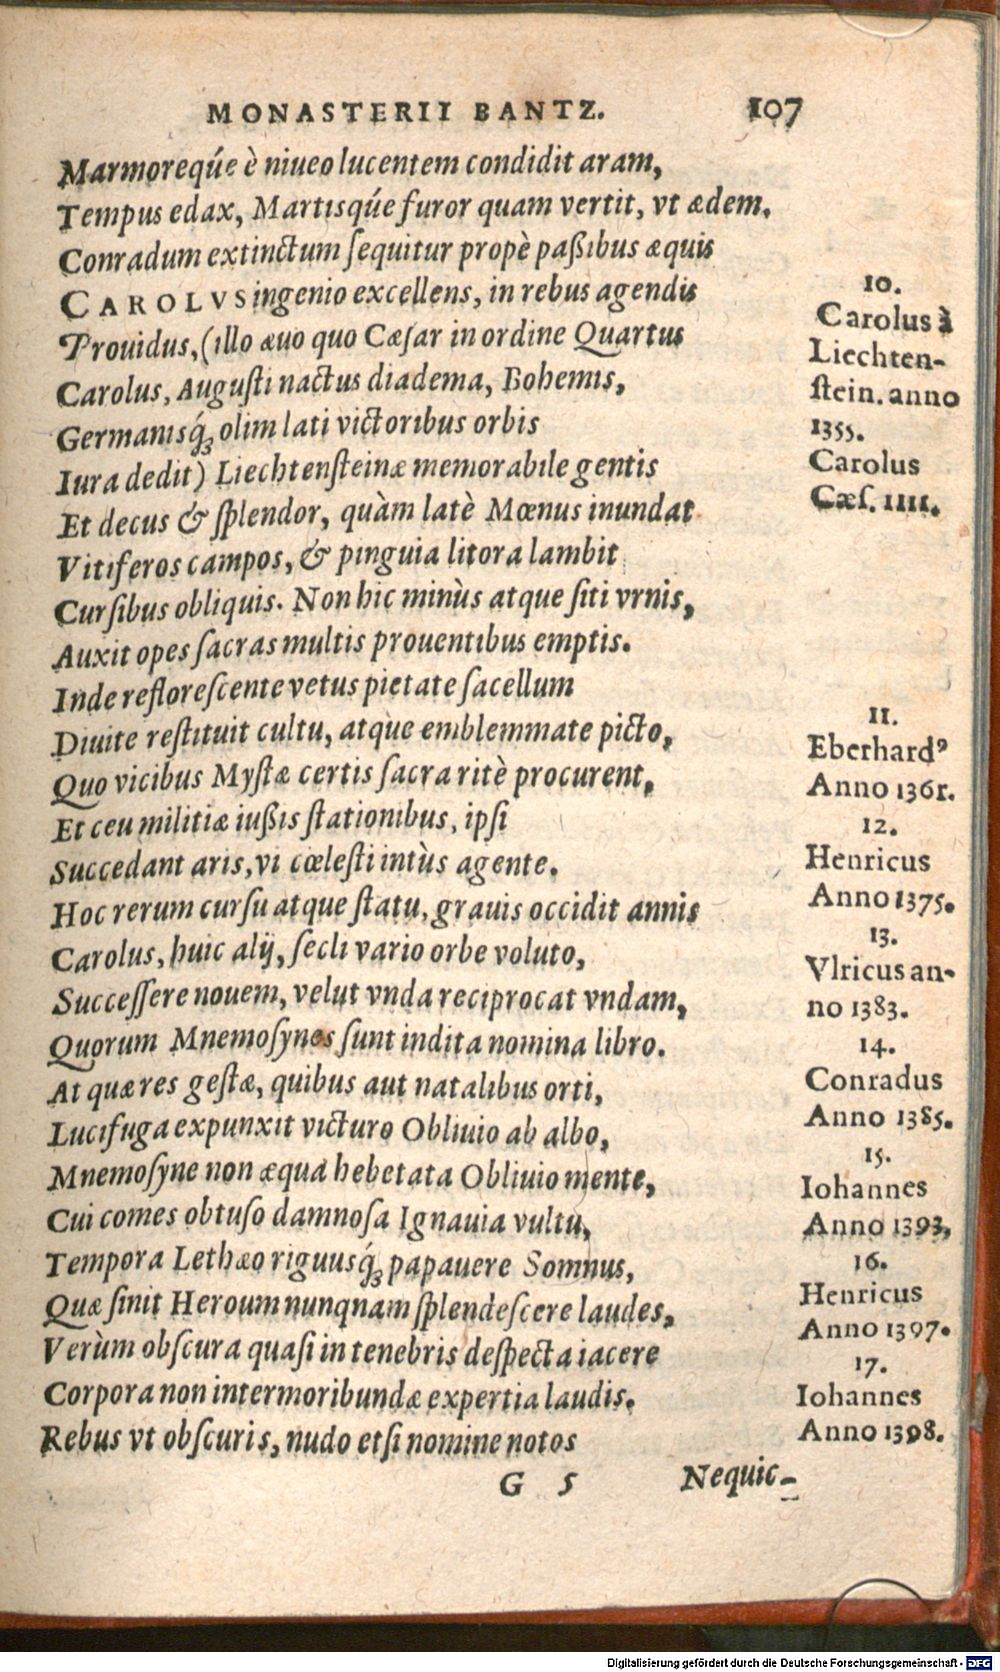 MONASTERII BANTZ. 107
Marmoreq́ue è niueo lucentem condidit aram,
Tempus edax, Martisq́ue furor quam vertit, vt ædem.
Conradum extinctum ſequitur propè paßibus æquis
CAROLVS ingenio excellens, in rebus agendis
Prouidus, (illo æuo quo Cæſar in ordine Quartus
Carolus, Auguſti nactus diadema, Bohemis,
Germanisq́ꝫ olim lati victoribus orbis
Iura dedit) Liechtenſteinæ memorabile gentis
Et decus & ſplendor, quàm latè Mœnus inundat
Vitiferos campos, & pinguia litora lambit
Curſibus obliquis. Non hic minùs atque ſiti vrnis,
Auxit opes ſacras multis prouentibus emptis.
Inde reflorescente vetus pietate ſacellum
Diuite reſtituit cultu, atque emblemmate picto,
Quo vicibus Myſtæ certis ſacra ritè procurent,
Et ceu militiæ iußis ſtationibus, ipſi
Succedant aris, vi cœleſti intùs agente.
Hoc rerum curſu atque ſtatu, grauis occidit annis
Carolus, huic alij, ſecli vario orbe voluto,
Succeſſere nouem, velut vnda reciprocat vndam,
Quorum Mnemoſynes ſunt indita nomina libro.
At quæ res geſtæ, quibus aut natalibus orti,
Lucifuga expunxit victuro Obliuio ab albo,
Mnemoſyne non æqua hebetata Obliuio mente,
Cui comes obtuſo damnoſa Ignauia vultu,
Tempora Lethæo riguusq́ꝫ papauere Somnus,
Quæ ſinit Heroum nunqnam ſplendeſcere laudes,
Verùm obſcura quaſi in tenebris deſpecta iacere
Corpora non intermoribundæ expertia laudis.
Rebus vt obſcuris, nudo etſi nomine notos
G 5 Nequic-
10.
Carolus à
Liechten-
ſtein. anno
1355.
Carolus
Cæſ. IIII.
11.
Eberhardꝰ
Anno 1361.
12.
Henricus
Anno 1375.
13.
Vlricus an-
no 1383.
14.
Conradus
Anno 1385.
15.
Iohannes
Anno 1393,
16.
Henricus
Anno 1397.
17.
Iohannes
Anno 1398.
Digitalisierung gefördert durch die Deutsche Forschungsgemeinschaft - DFG